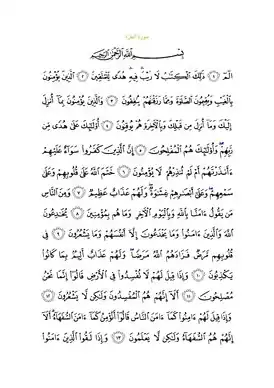 سورة البقرة
بِسْمِ ٱللَّهِ ٱلرَّحْمَٰنِ ٱلرَّحِيمِ
الٓمٓ ١ ذَٰلِكَ ٱلْكِتَٰبُ لَا رَيْبَ فِيهِ هُدًى لِّلْمُتَّقِينَ ٢ ٱلَّذِينَ يُؤْمِنُونَ
بِٱلْغَيْبِ وَيُقِيمُونَ ٱلصَّلَوٰةَ وَمِمَّا رَزَقْنَٰهُمْ يُنفِقُونَ ٣ وَٱلَّذِينَ يُؤْمِنُونَ بِمَآ أُنزِلَ
إِلَيْكَ وَمَآ أُنزِلَ مِن قَبْلِكَ وَبِٱلْءَاخِرَةِ هُمْ يُوقِنُونَ ٤ أُو۟لَٰٓئِكَ عَلَىٰ هُدًى مِّن
رَّبِّهِمْ وَأُو۟لَٰٓئِكَ هُمُ ٱلْمُفْلِحُونَ ٥ إِنَّ ٱلَّذِينَ كَفَرُوا۟ سَوَآءٌ عَلَيْهِمْ
ءَأَنذَرْتَهُمْ أَمْ لَمْ تُنذِرْهُمْ لَا يُؤْمِنُونَ ٦ خَتَمَ ٱللَّهُ عَلَىٰ قُلُوبِهِمْ وَعَلَىٰ
سَمْعِهِمْ وَعَلَىٰٓ أَبْصَٰرِهِمْ غِشَٰوَةٌ وَلَهُمْ عَذَابٌ عَظِيمٌ ٧ وَمِنَ ٱلنَّاسِ
مَن يَقُولُ ءَامَنَّا بِٱللَّهِ وَبِٱلْيَوْمِ ٱلْءَاخِرِ وَمَا هُم بِمُؤْمِنِينَ ٨ يُخَٰدِعُونَ
ٱللَّهَ وَٱلَّذِينَ ءَامَنُوا۟ وَمَا يَخْدَعُونَ إِلَّآ أَنفُسَهُمْ وَمَا يَشْعُرُونَ ٩ فِى
قُلُوبِهِم مَّرَضٌ فَزَادَهُمُ ٱللَّهُ مَرَضًا وَلَهُمْ عَذَابٌ أَلِيمٌۢ بِمَا كَانُوا۟
يَكْذِبُونَ ١٠ وَإِذَا قِيلَ لَهُمْ لَا تُفْسِدُوا۟ فِى ٱلْأَرْضِ قَالُوٓا۟ إِنَّمَا نَحْنُ
مُصْلِحُونَ ١١ أَلَآ إِنَّهُمْ هُمُ ٱلْمُفْسِدُونَ وَلَٰكِن لَّا يَشْعُرُونَ ١٢
وَإِذَا قِيلَ لَهُمْ ءَامِنُوا۟ كَمَآ ءَامَنَ ٱلنَّاسُ قَالُوٓا۟ أَنُؤْمِنُ كَمَآ ءَامَنَ ٱلسُّفَهَآءُ أَلَآ
إِنَّهُمْ هُمُ ٱلسُّفَهَآءُ وَلَٰكِن لَّا يَعْلَمُونَ ١٣ وَإِذَا لَقُوا۟ ٱلَّذِينَ ءَامَنُوا۟